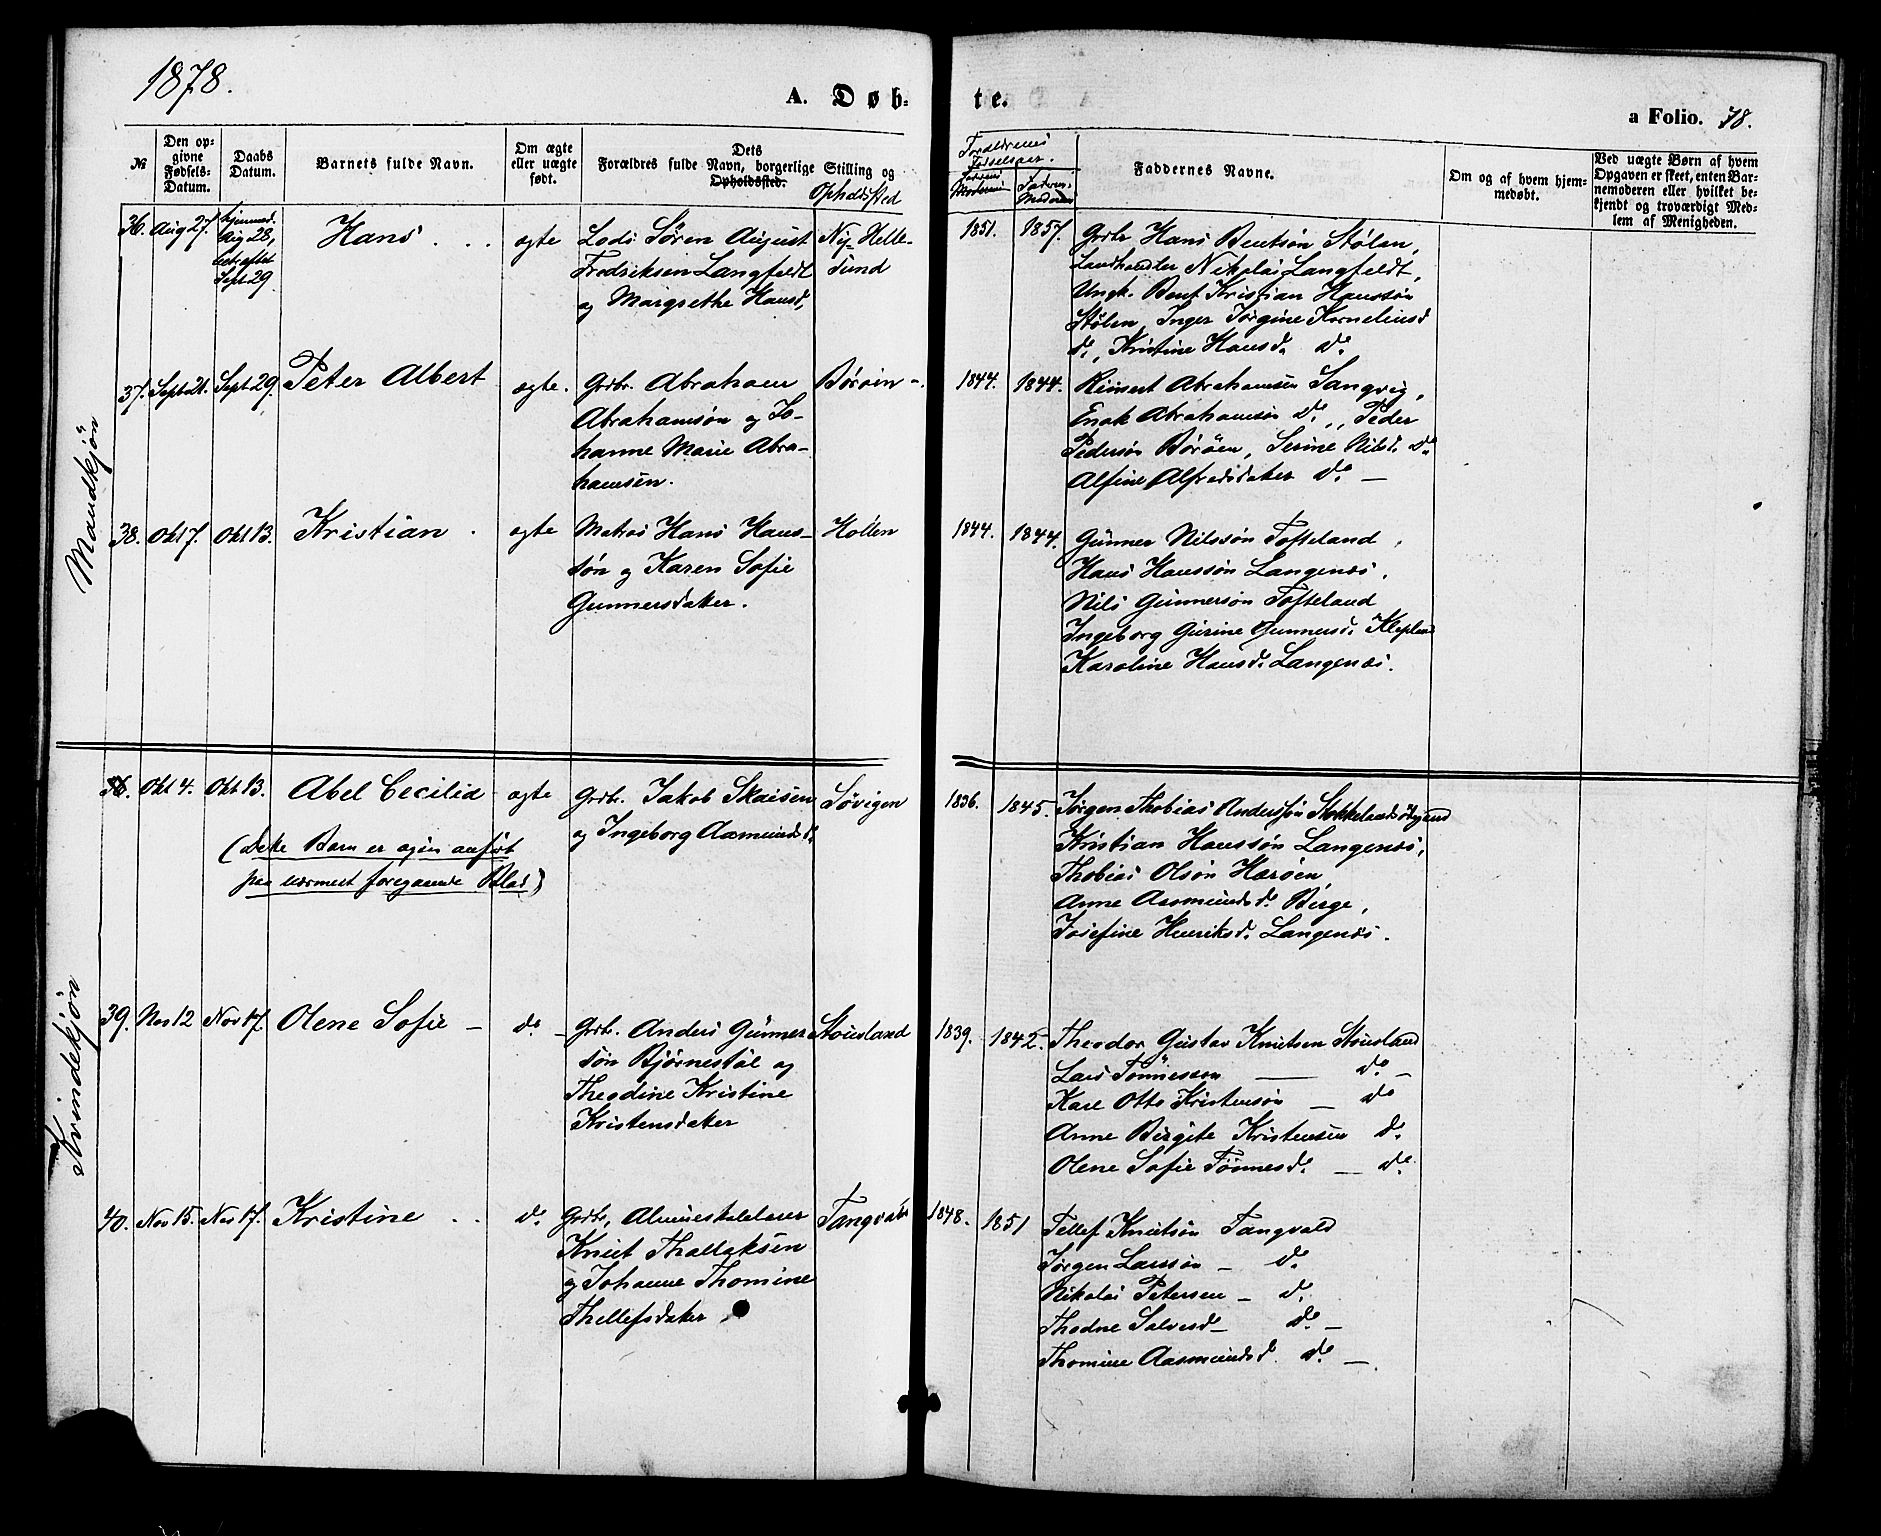 1878.
A. Døb-
te.
a Folio. 78.
№
Den op-
givne
Fødsels-
Datum.
Daabs
Datum.
Barnets fulde Navn.
Om ægte
eller uægte
født.
Dets
Forældres fulde Navn, borgerlige Stilling og
Opholdssted.
Opholdssted
Forældrenes
Fødselsaar.
Faddernes Navne.
Om og af hvem hjem-
medøbt.
Ved uægte Børn af hvem
Opgaven er skeet, enten Bar-
nemoderen eller hvilket be-
kjendt og troværdigt Med-
lem af Menigheden.
Mandkjön
36. Aug 27. hjemmed.
Aug 28,
Sept 29
Hans
ægte
Lods Søren August
Fredriksen Langfeldt
og Margrethe Hansd.
Ny-Helle-
sund
1851. 1857.
Grdbr Hans Bentsön Stølen,
Landhandler Nikolai Langfeldt,
Ungk. Bent Kristian Hanssön
Stølen, Inger Jörgine Korneliusd
do, Kristine Hansd. do
37. Sept 21. Sept 29. Peter Albert
ægte.
Grdbr. Abraham
Abrahamsön og Jo-
hanne Marie Abra-
hamsen.
Börøen
1844. 1844.
Reinert Abrahamsen Sangvig,
Enok Abrahamsön do, Peder
Pedersön Börøen, Serine Nilsd. do
Alfine Alfredsdatter do
38. Okt 7. Okt 13. Kristian
ægte
Matros Hans Hans-
søn og Karen Sofie
Gunnersdatter.
Hollen
1844. 1844.
Gunner Nilssøn Tofteland,
Hans Hanssøn Langenes,
Nils Gunnersøn Tofteland
Ingeborg Gurine Gunnersd. Klepland
Karoline Hansd. Langenes.
Kvindekjön
Okt 4. Okt 13. Abel Cecilia
ægte
Grdbr. Jakob Skaisen
og Ingeborg Aasmundsd.
Søvigen
1836. 1845.
(Dette Barn er ogsaa anført
paa nærmest foregaaende Blad)
Jørgen Thobias Anderssøn Stokkelandsødegaard
Kristian Hanssøn Langenes,
Thobias Olsøn Herøen
Anne Aasmundsd. Birge,
Josefine Henriksd. Langenes.
39. Nov 12 Nov 17. Olene Sofie
do
Grdbr. Anders Gunner-
søn Bjørnestøl og
Theodine Kristine
Kristensdatter
Stousland
1839. 1842.
Theodor Gustav Knutsen Stousland
Lars Tønnessøn do
Karl Otto Kristensøn do
Anne Birgite Kristensen do
Olene Sofie Tønnesd. do
40. Nov 15. Nov 17. Kristine
do
Grdbr, Almueskolelærer
Knut Thallaksen
og Johanne Thomine
Thellefsdatter
Tangvald
1848. 1851
Tellef Knutsøn Tangvald
Jørgen Larssøn do
Nikolai Petersen do
Thodne Salvesd do
Thomine Aasmundsd. do